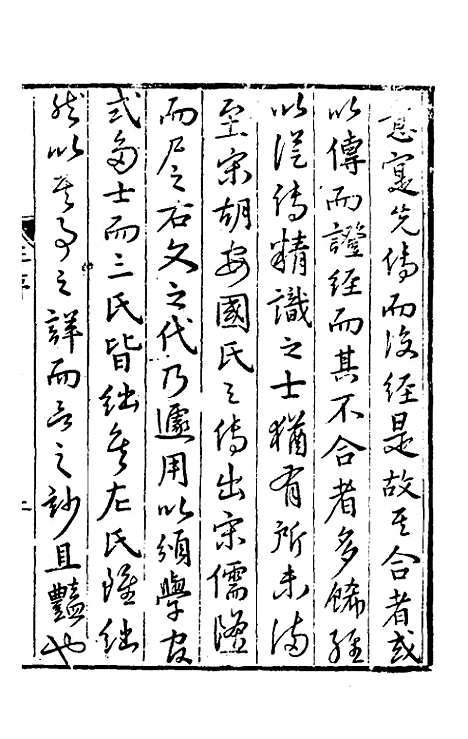 意寔先傳而後經是故其合者或
以傳而證經而其不合者多餙經
以從傳精識之士猶有所未滿
至宋胡安國氏之傳出宋儒隆
而尸之右文之代乃遽用以頒學官
式多士而三氏皆絀矣左氏雖絀
然以其事之詳而言之妙且豔也